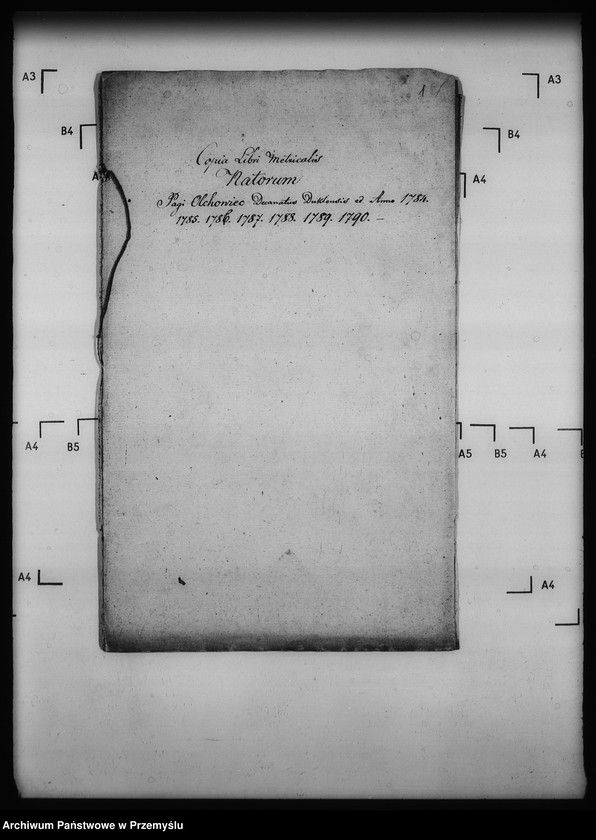 1
Copia Libri Metricalis
Natorum
Pagi Olchowiec Decanatus Duklensis ed Anno 1784.
1785. 1786. 1787. 1788. 1789. 1790. —
A3
A3
B4
B4
A4
A4
B5
A5
B5
A4
A4
A4
Archiwum Państwowe w Przemyślu